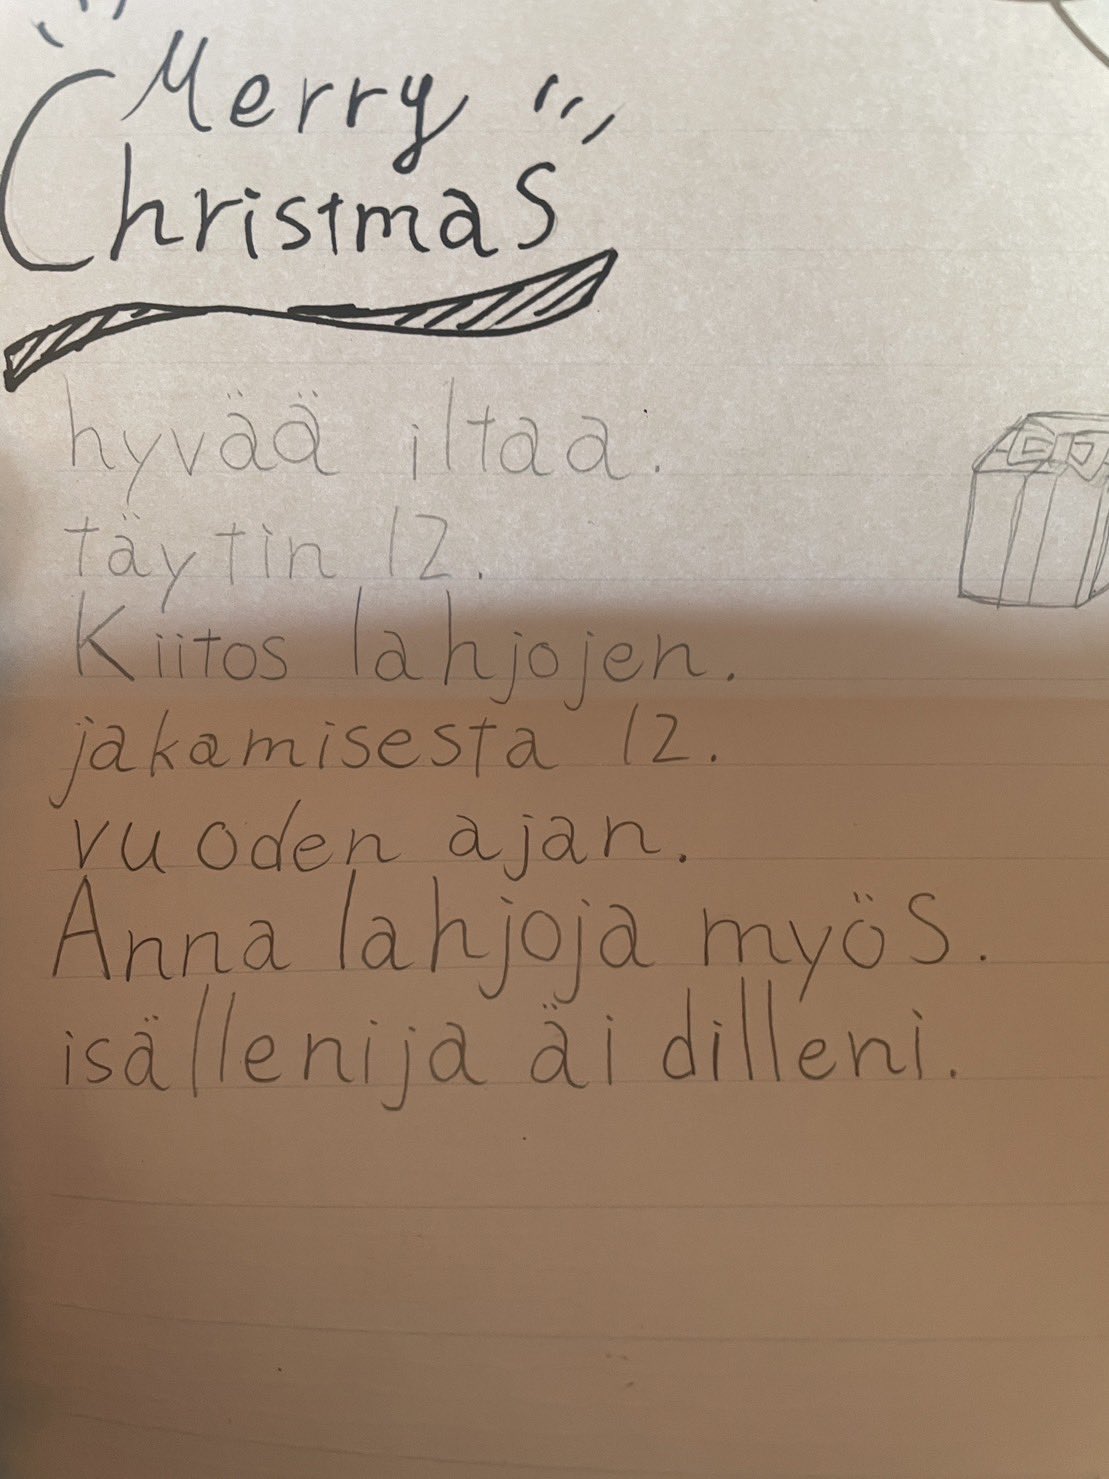 Merry
Christmas
hyvää iltaa.
täytin 12.
Kiitos lahjojen.
jakamisesta 12.
vuoden ajan.
Anna lahjoja myös.
isällenija äi dilleni.